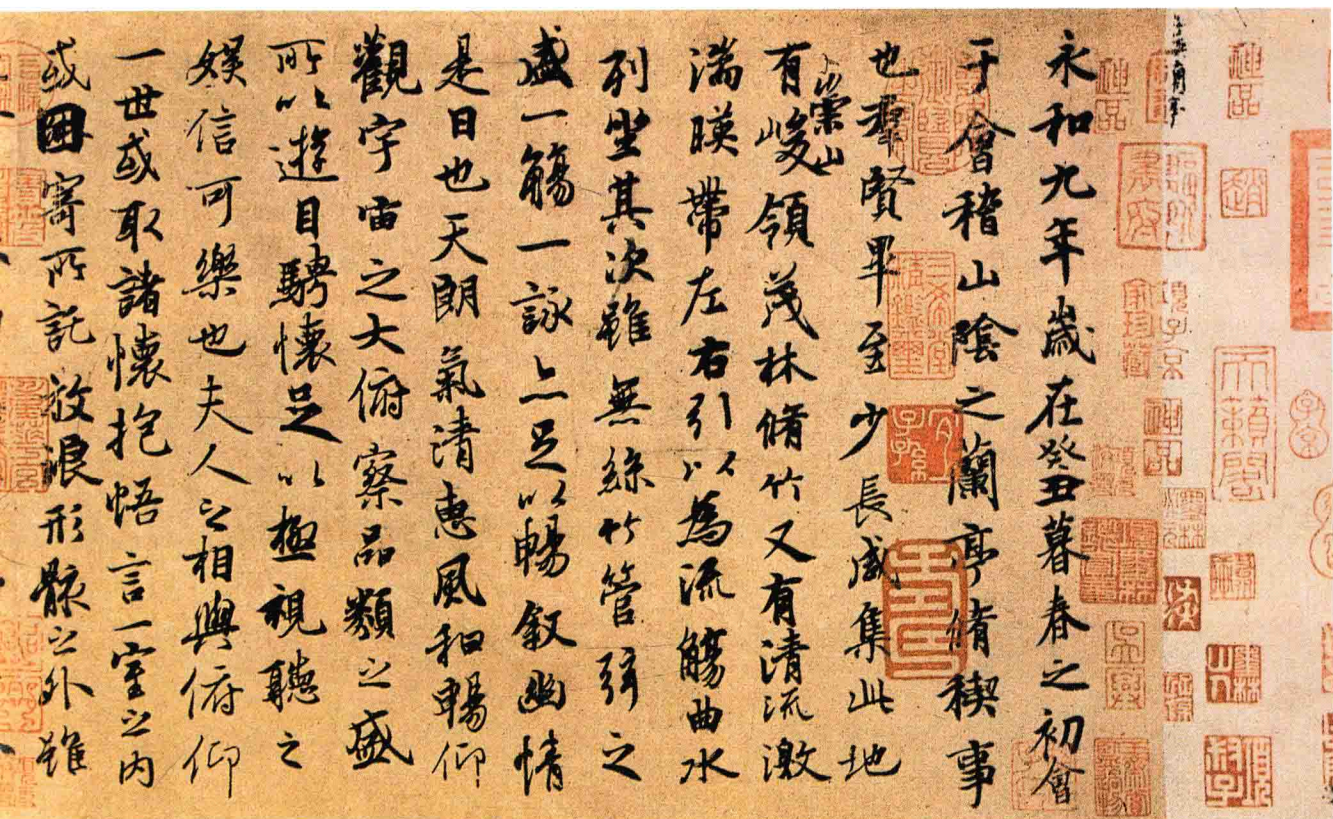 神品
趙
天籟閣
子京
神品
項子京
神品
吳興
永和九年歲在癸丑暮春之初會
于會稽山陰之蘭亭脩稧事
也羣賢畢至少長咸集此地
有崇山峻領茂林脩竹又有清流激
湍暎帶左右引以為流觴曲水
列坐其次雖無絲竹管弦之
盛一觴一詠亦足以暢敘幽情
是日也天朗氣清惠風和暢仰
觀宇宙之大俯察品類之盛
所以遊目騁懷足以極視聽之
娛信可樂也夫人之相與俯仰
一世或取諸懷抱悟言一室之內
或因寄所託放浪形骸之外雖